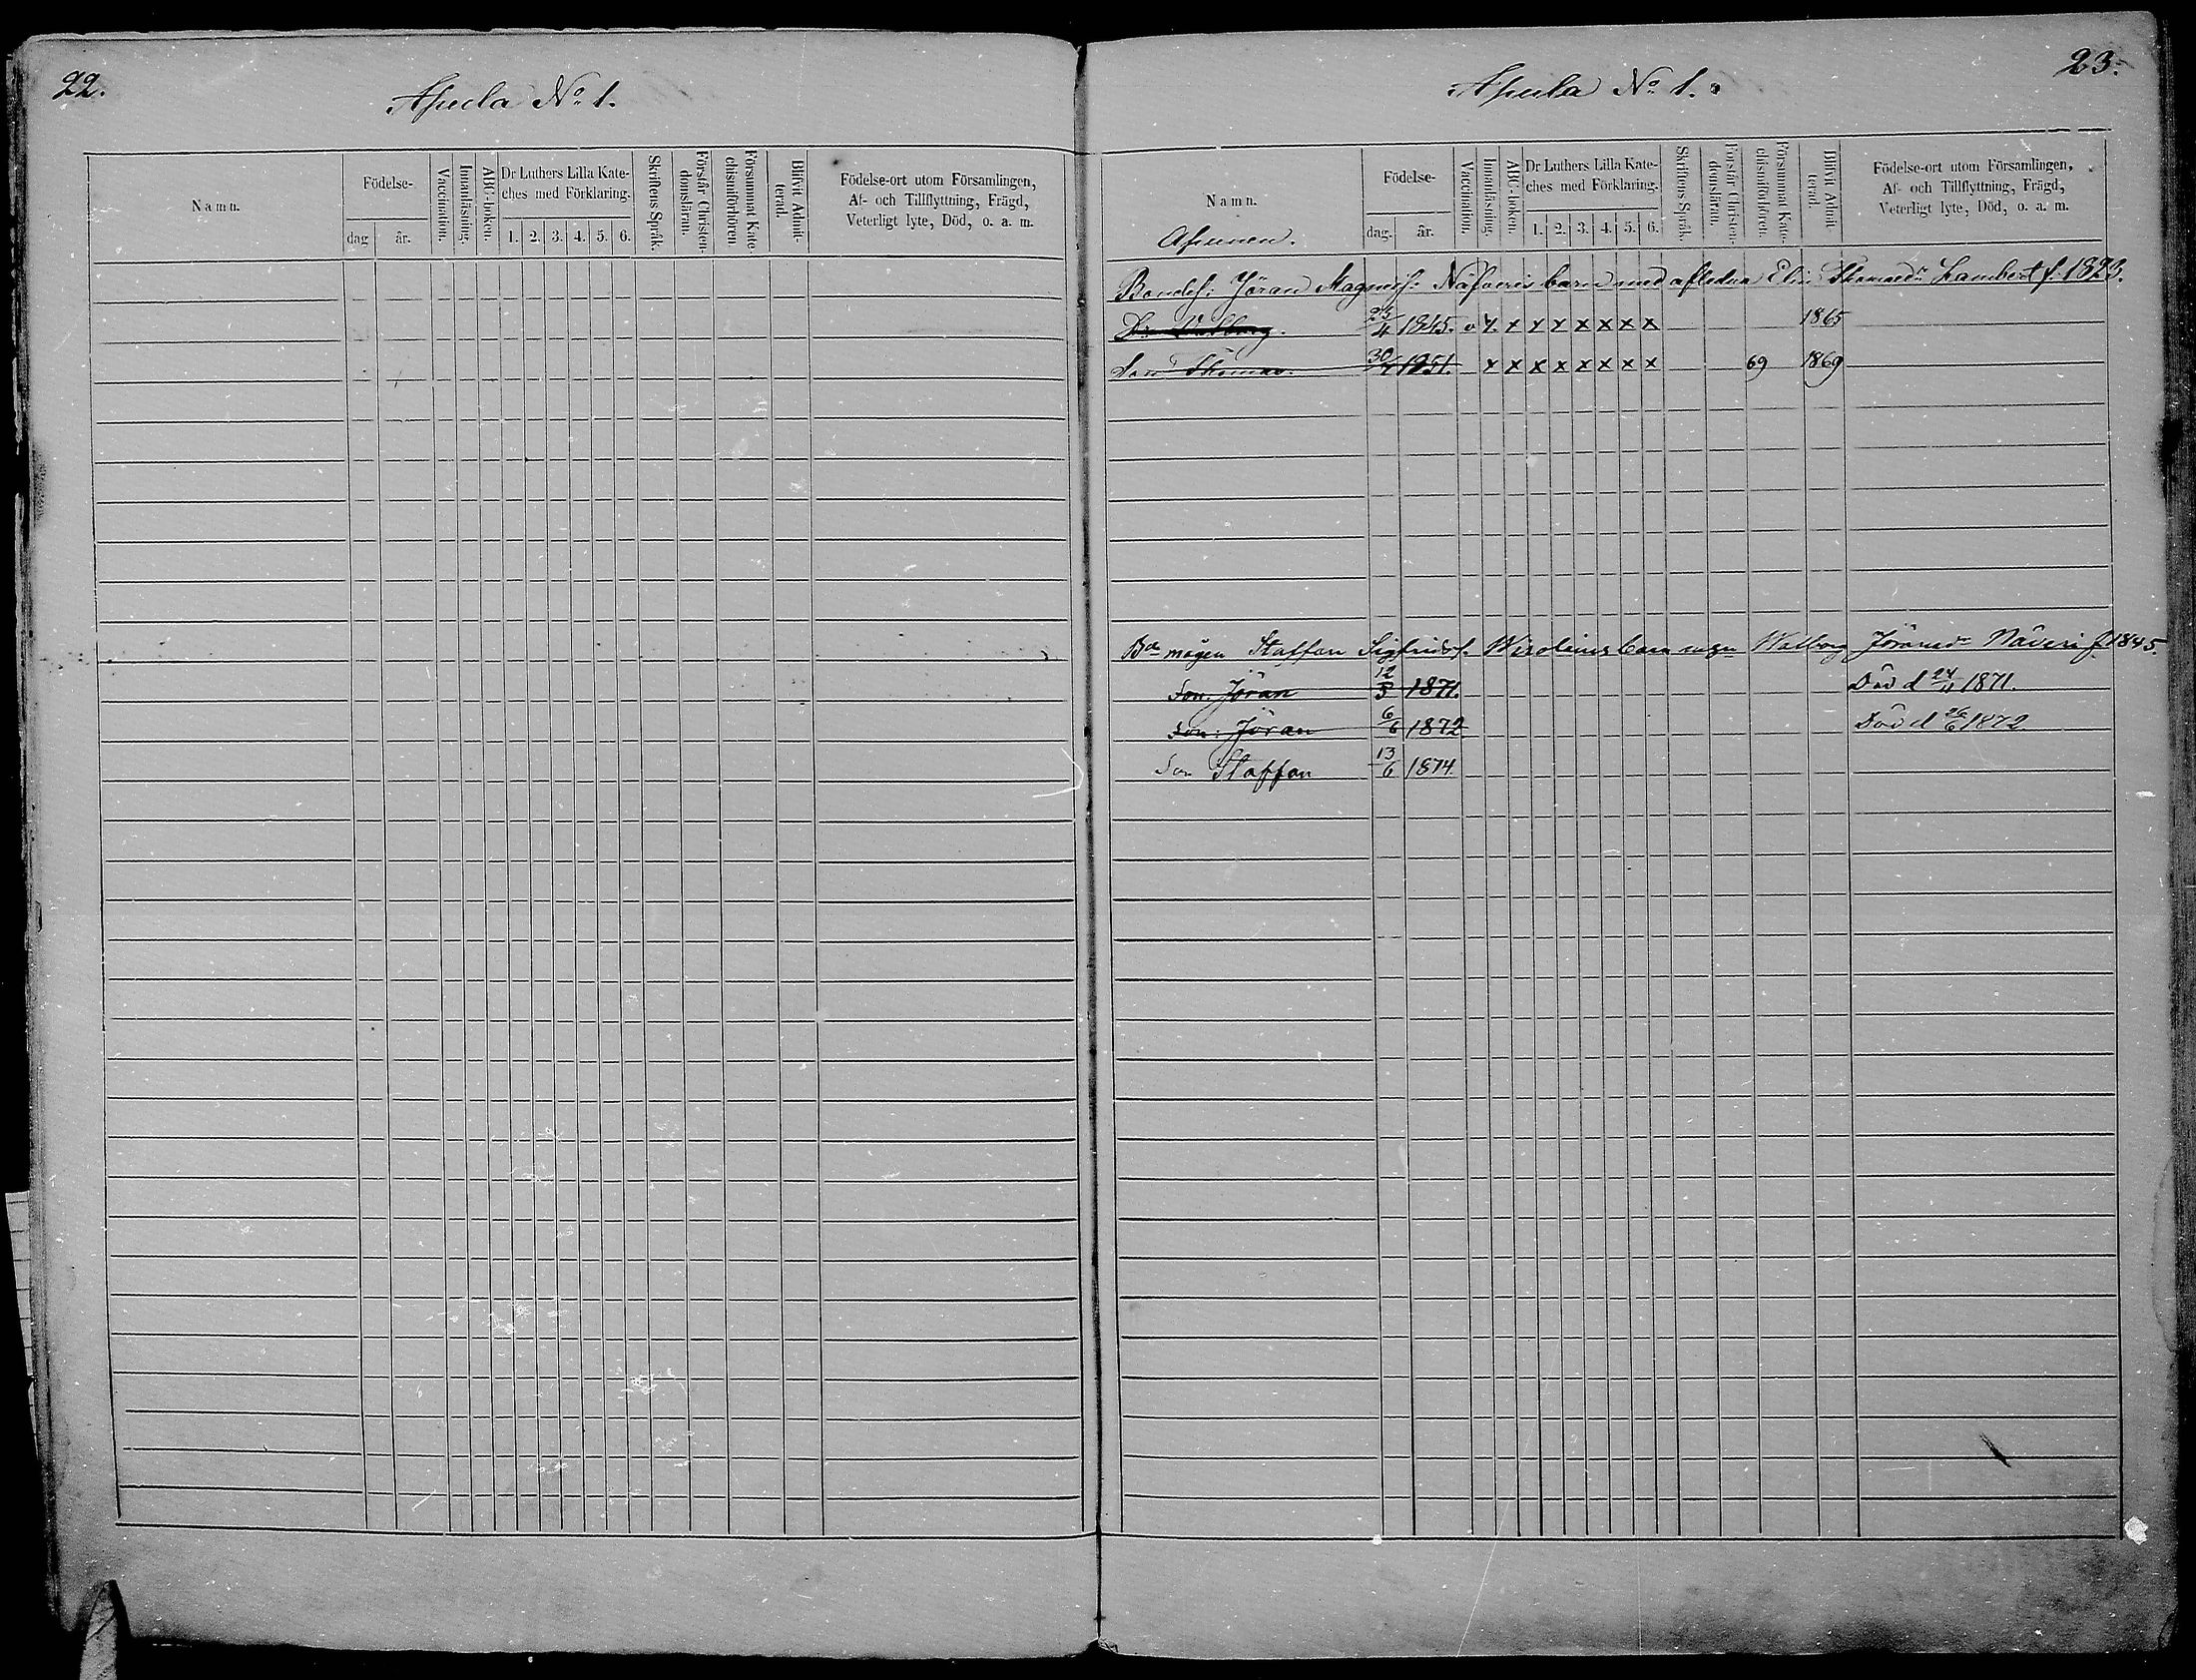 22.
Apula No 1.
Namn.
Födelse-
dag
år.
Vaccination.
Innanläsning.
ABC-boken.
Dr Luthers Lilla Kate-
ches med Förklaring.
1. 2. 3. 4. 5. 6.
Skriftens Språk.
Förstår Christen-
domsläran.
Försummat Kate-
chismiförhören
Blifvit Admit-
terad.
Födelse-ort utom Församlingen,
Af- och Tillflyttning, Frägd,
Veterligt lyte, Död, o. a. m.
23.
Apula No 1.
Namn.
Födelse-
dag.
år.
Vaccination.
Innanläsning.
ABC-boken.
Dr Luthers Lilla Kate-
ches med Förklaring.
1. 2. 3. 4. 5. 6.
Skriftens Språk.
Förstår Christen-
domsläran.
Försummat Kate-
chismiförhören.
Blifvit Admit-
terad.
Födelse-ort utom Församlingen,
Af- och Tillflyttning, Frägd,
Veterligt lyte, Död, o. a. m.
Apunen.
Bondes: Jöran Magnuss: Näfveris barn med afledna Elin Thomasdr Lambert f. 1823.
Dr Walborg. 25/4 1845. v x x x x x x x x 1865
Son Thomas. 30/7 1851. x x x x x x x x 69 1869
Bde mågen Staffan Sigfridss. Wirolains barn m. Walborg Jöransdr Näveri f. 1845.
Son: Jöran 12/3 1871. Död d 24/11 1871.
Son: Jöran 6/6 1872 Död d 26/6 1872.
Son Staffan 13/6 1874